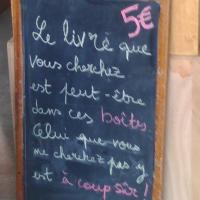 5€
Le livre que
vous cherchez
est peut-être
dans ces boîtes
Celui que vous
ne cherchez pas y
est à coup sûr !